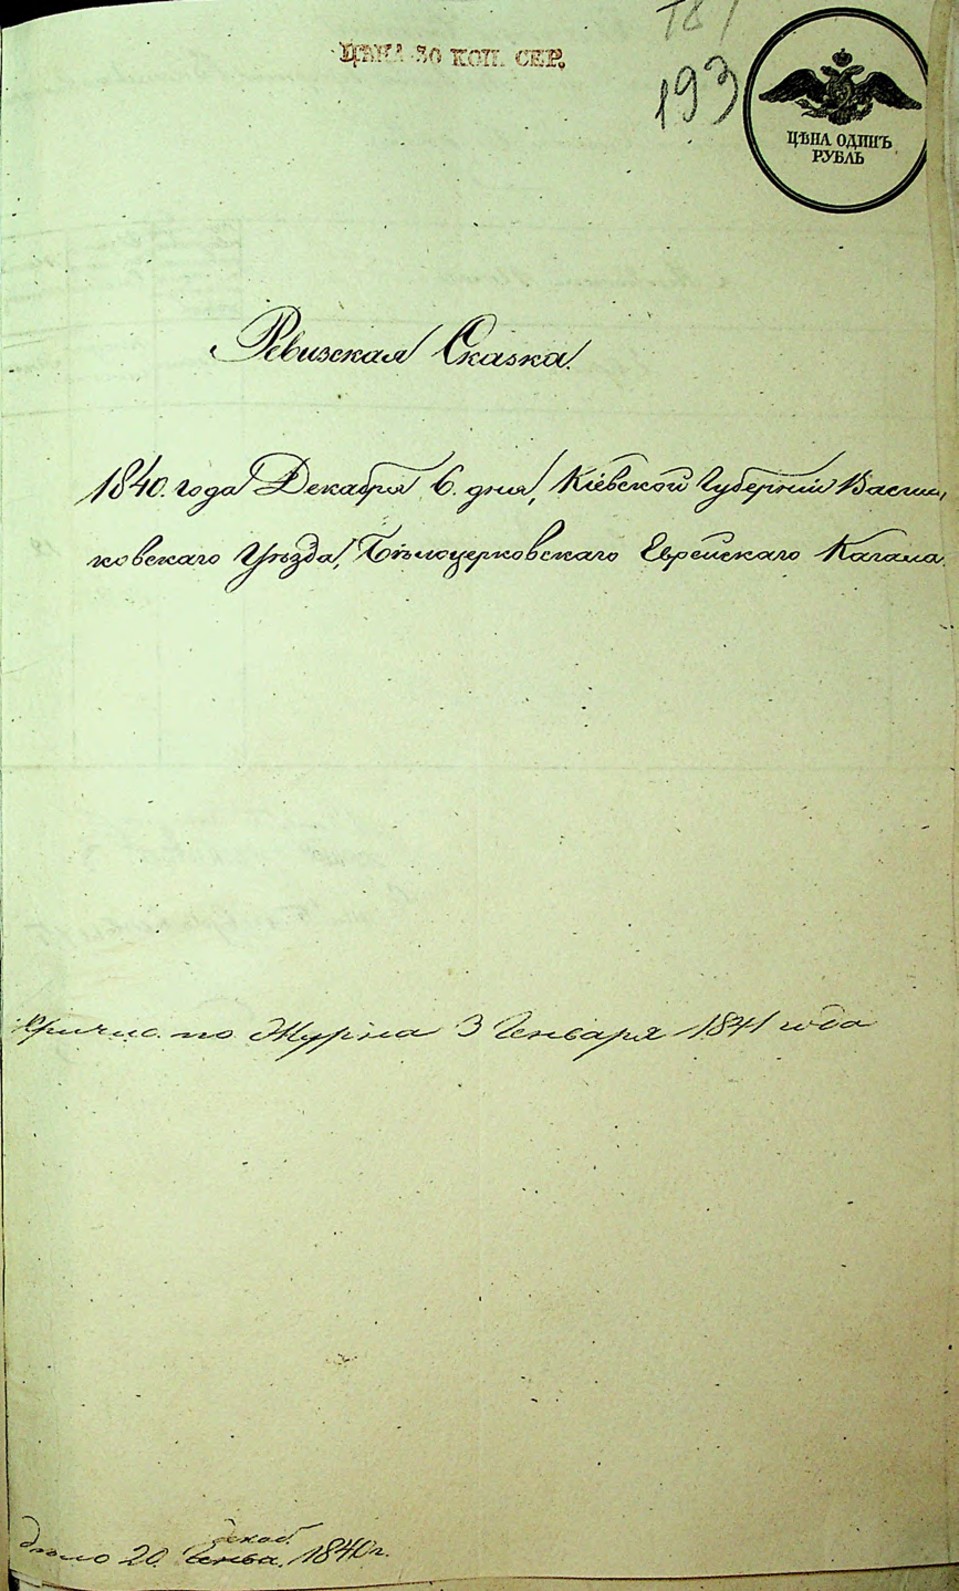 ЦѢНА 30 КОП. СЕР.
193
ЦѢНА ОДИНЪ
РУБЛЬ
Ревизская Сказка.
1840. года Декабря 6. дня, Кіевской Губерніи Василь,
ковскаго Уѣзда, Бѣлоцерковскаго Еврейскаго Кагала.
по Журна 3 Генваря 1841 года
декаб.
20. Генва. 1840 г.